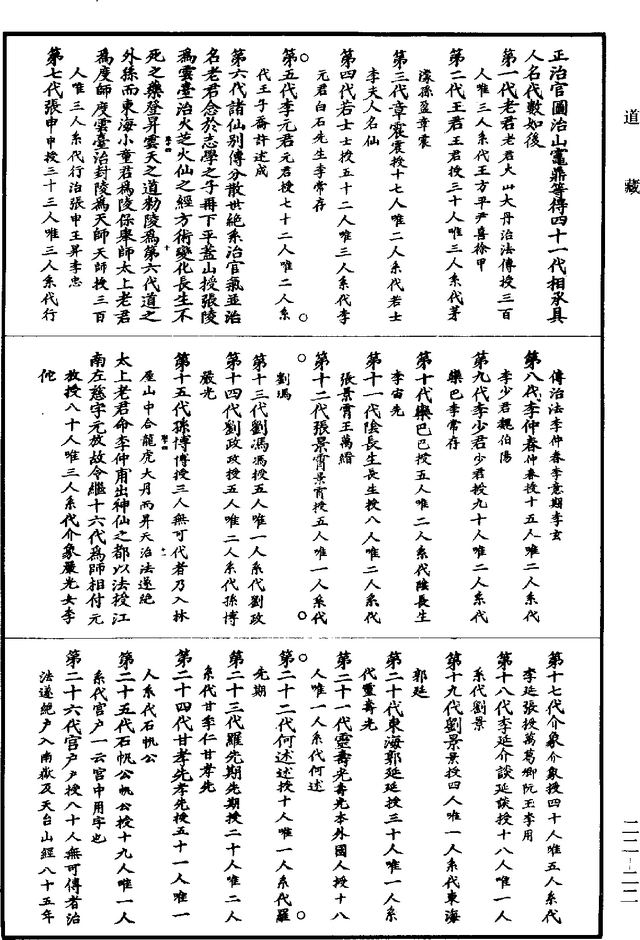 道藏
正治官圖治山竈鼎等得四十一代相承具
人名代數如後
第一代老君老君大山大丹治法傳授三百
人唯三人系代王方平尹喜徐甲
第二代王君王君授三十人唯三人系代茅
濛孫盈章震
第三代章震震授十七人唯二人系代若士
李夫人名仙
第四代若士士授五十二人唯三人系代李
元君白石先生李常存
第五代李元君元君授七十二人唯二人系
代王子喬許述成
第六代諸仙別傳分散世絶系治官氣並治
名老君念於志學之子再下平蓋山授張陵
爲雲臺治火芝火仙之經方術變化長生不
死之藥登昇雲天之道勑陵爲第六代道之
外孫而東海小童君爲陵保舉師太上老君
爲度師度雲臺治封陵爲天師天師授三百
人唯三人系代行治張申王昇李忠
第七代張申申授三十三人唯三人系代行
傳治法李仲春李意期李玄
第八代李仲春仲春授十五人唯二人系代
李少君魏伯陽
第九代李少君少君授九十人唯二人系代
欒巴李常存
第十代欒巴巴授五人唯二人系代陰長生
李宙先
第十一代陰長生長生授八人唯二人系代
張景霄王萬縉
第十二代張景霄景霄授五人唯一人系代
劉馮
第十三代劉馮馮授五人唯一人系代劉政
第十四代劉政政授五人唯二人系代孫博
嚴光
第十五代孫博博授三人無可代者乃入林
屋山中合龍虎大丹而昇天治法遂絶
太上老君命李仲甫出神仙之都以法授江
南左慈字元放故令繼十六代爲師相付元
放授八十人唯三人系代介象嚴光女李
佗
第十七代介象介象授四十人唯五人系代
李延張授萬葛鄉阮玉李用
第十八代李延介談延談授十八人唯一人
系代劉景
第十九代劉景景授四人唯一人系代東海
郭延
第二十代東海郭延延授三十人唯一人系
代靈壽光
第二十一代靈壽光壽光本外國人授十八
人唯一人系代何述
第二十二代何述述授十人唯一人系代羅
先期
第二十三代羅先期先期授二十人唯二人
系代甘季仁甘孝先
第二十四代甘孝先孝先授五十一人唯一
人系代石帆公
第二十五代石帆公帆公授十九人唯一人
系代宫户一云宫中用字也
第二十六代宫户户授八十人無可傳者治
法遂絶户入南嶽及天台山經八十五年
二二-二二